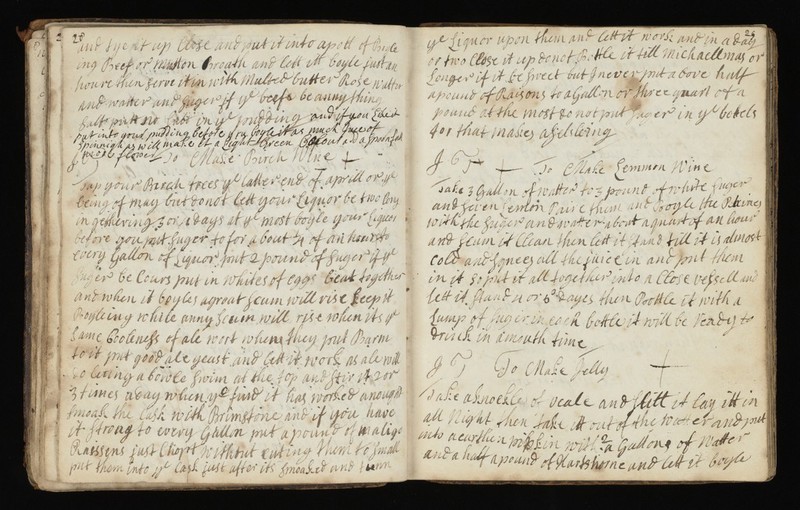 28
and tye it up Close and put it into a pott of Boyle
ing Beef or mutton broath and lett itt boyle just an
houre then serve it in with Malted butter Rose watter
and watter and suger if ye beefe be anny thing
salt putt no salt in ye pudding and if you
put into your pudding before you boyle it as much Juce of
spinnigh as will make it a light Green Coulour and a spoonfull
flower
J To Make Birch Wine
Tap your Birch trees ye latter end of aprill or ye
being of may but donot lett your Liquor be two long
in gethering 3 or 4 days at ye most boyle your Liquor
before you put suger to for a bout 3/4 of an hour to
every Gallon of Liquor put 2 pound of suger if ye
suger be Cours put in whites of eggs beat together
and when it boyles agreat scum will rise keep it
Boyleing while anny scum will rise when its ye
same Cooleness of ale wort when they put Barm
to it put good ale yeast and lett it work as ale will
so leting a bowle swim at the top and stir it 2 or
3 times a day when you find it has worked anough
smoak the Cask with Brimstone and if you have
it strong to every Gallon put a pound of maliga
Raissens just Chopt without cuting them to small
put them into ye Cask just after its smoaked and tunn
29
ye Liquor upon them and lett it work and in a day
or two Close it up donot Bottle it till Michaellmas or
Longer if it be sweet but I never put a bove half
a pound of Raisons to a Gallon or three quart of a
pound at the most do not put suger in ye bottels
for that makes a
J T To Make Lemmon Wine
Take 3 Gallon of watter to 3 pound of white suger
and seven Lemon Paire them and Boyle the Paireing
with the suger and watter about a quart of an hour
and scum it Clean then lett it stand till it is almost
Cold and squees all the juice in and put them
in it so put it all together into a Close vessell and
lett it stand 4 or 6 dayes then Bottle it with a
Lump of suger in each bottle it will be Ready to
drink in a mouth time
J T To Make Jelly
Take a knockle of veale and slitt it lay itt in
all Night then take itt out of the watter and put
into a earthen pipkin with a Gallon of watter
and a half a pound of Hartshorne and lett it boyle